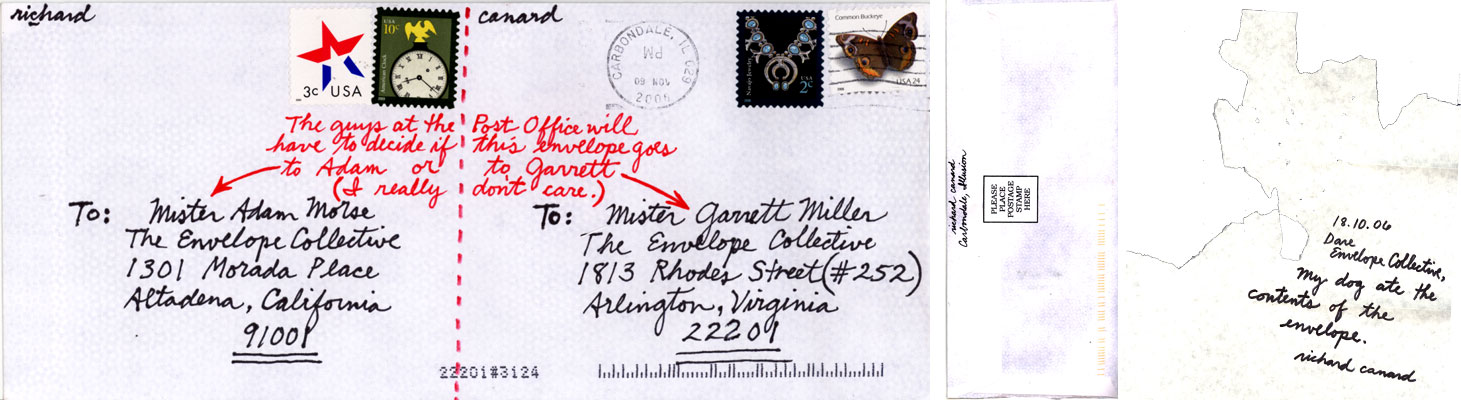 richard
canard
3c USA
USA
10c
American Clock
CARBONDALE, IL 629
PM
2006
Navajo Jewelry
USA
2c
Common Buckeye
USA 24
The guys at the Post Office will
have to decide if this envelope goes
to Adam or to Garrett
(I really don't care.)
To: Mister Adam Morse
The Envelope Collective
1301 Morada Place
Altadena, California
91001
To: Mister Garrett Miller
The Envelope Collective
1813 Rhodes Street (#252)
Arlington, Virginia
22201
22201#3124
richard canard
Carbondale, Illusion
PLEASE
PLACE
POSTAGE
STAMP
HERE
18.10.06
Dare
Envelope Collective,
My dog ate the
contents of the
envelope.
richard canard